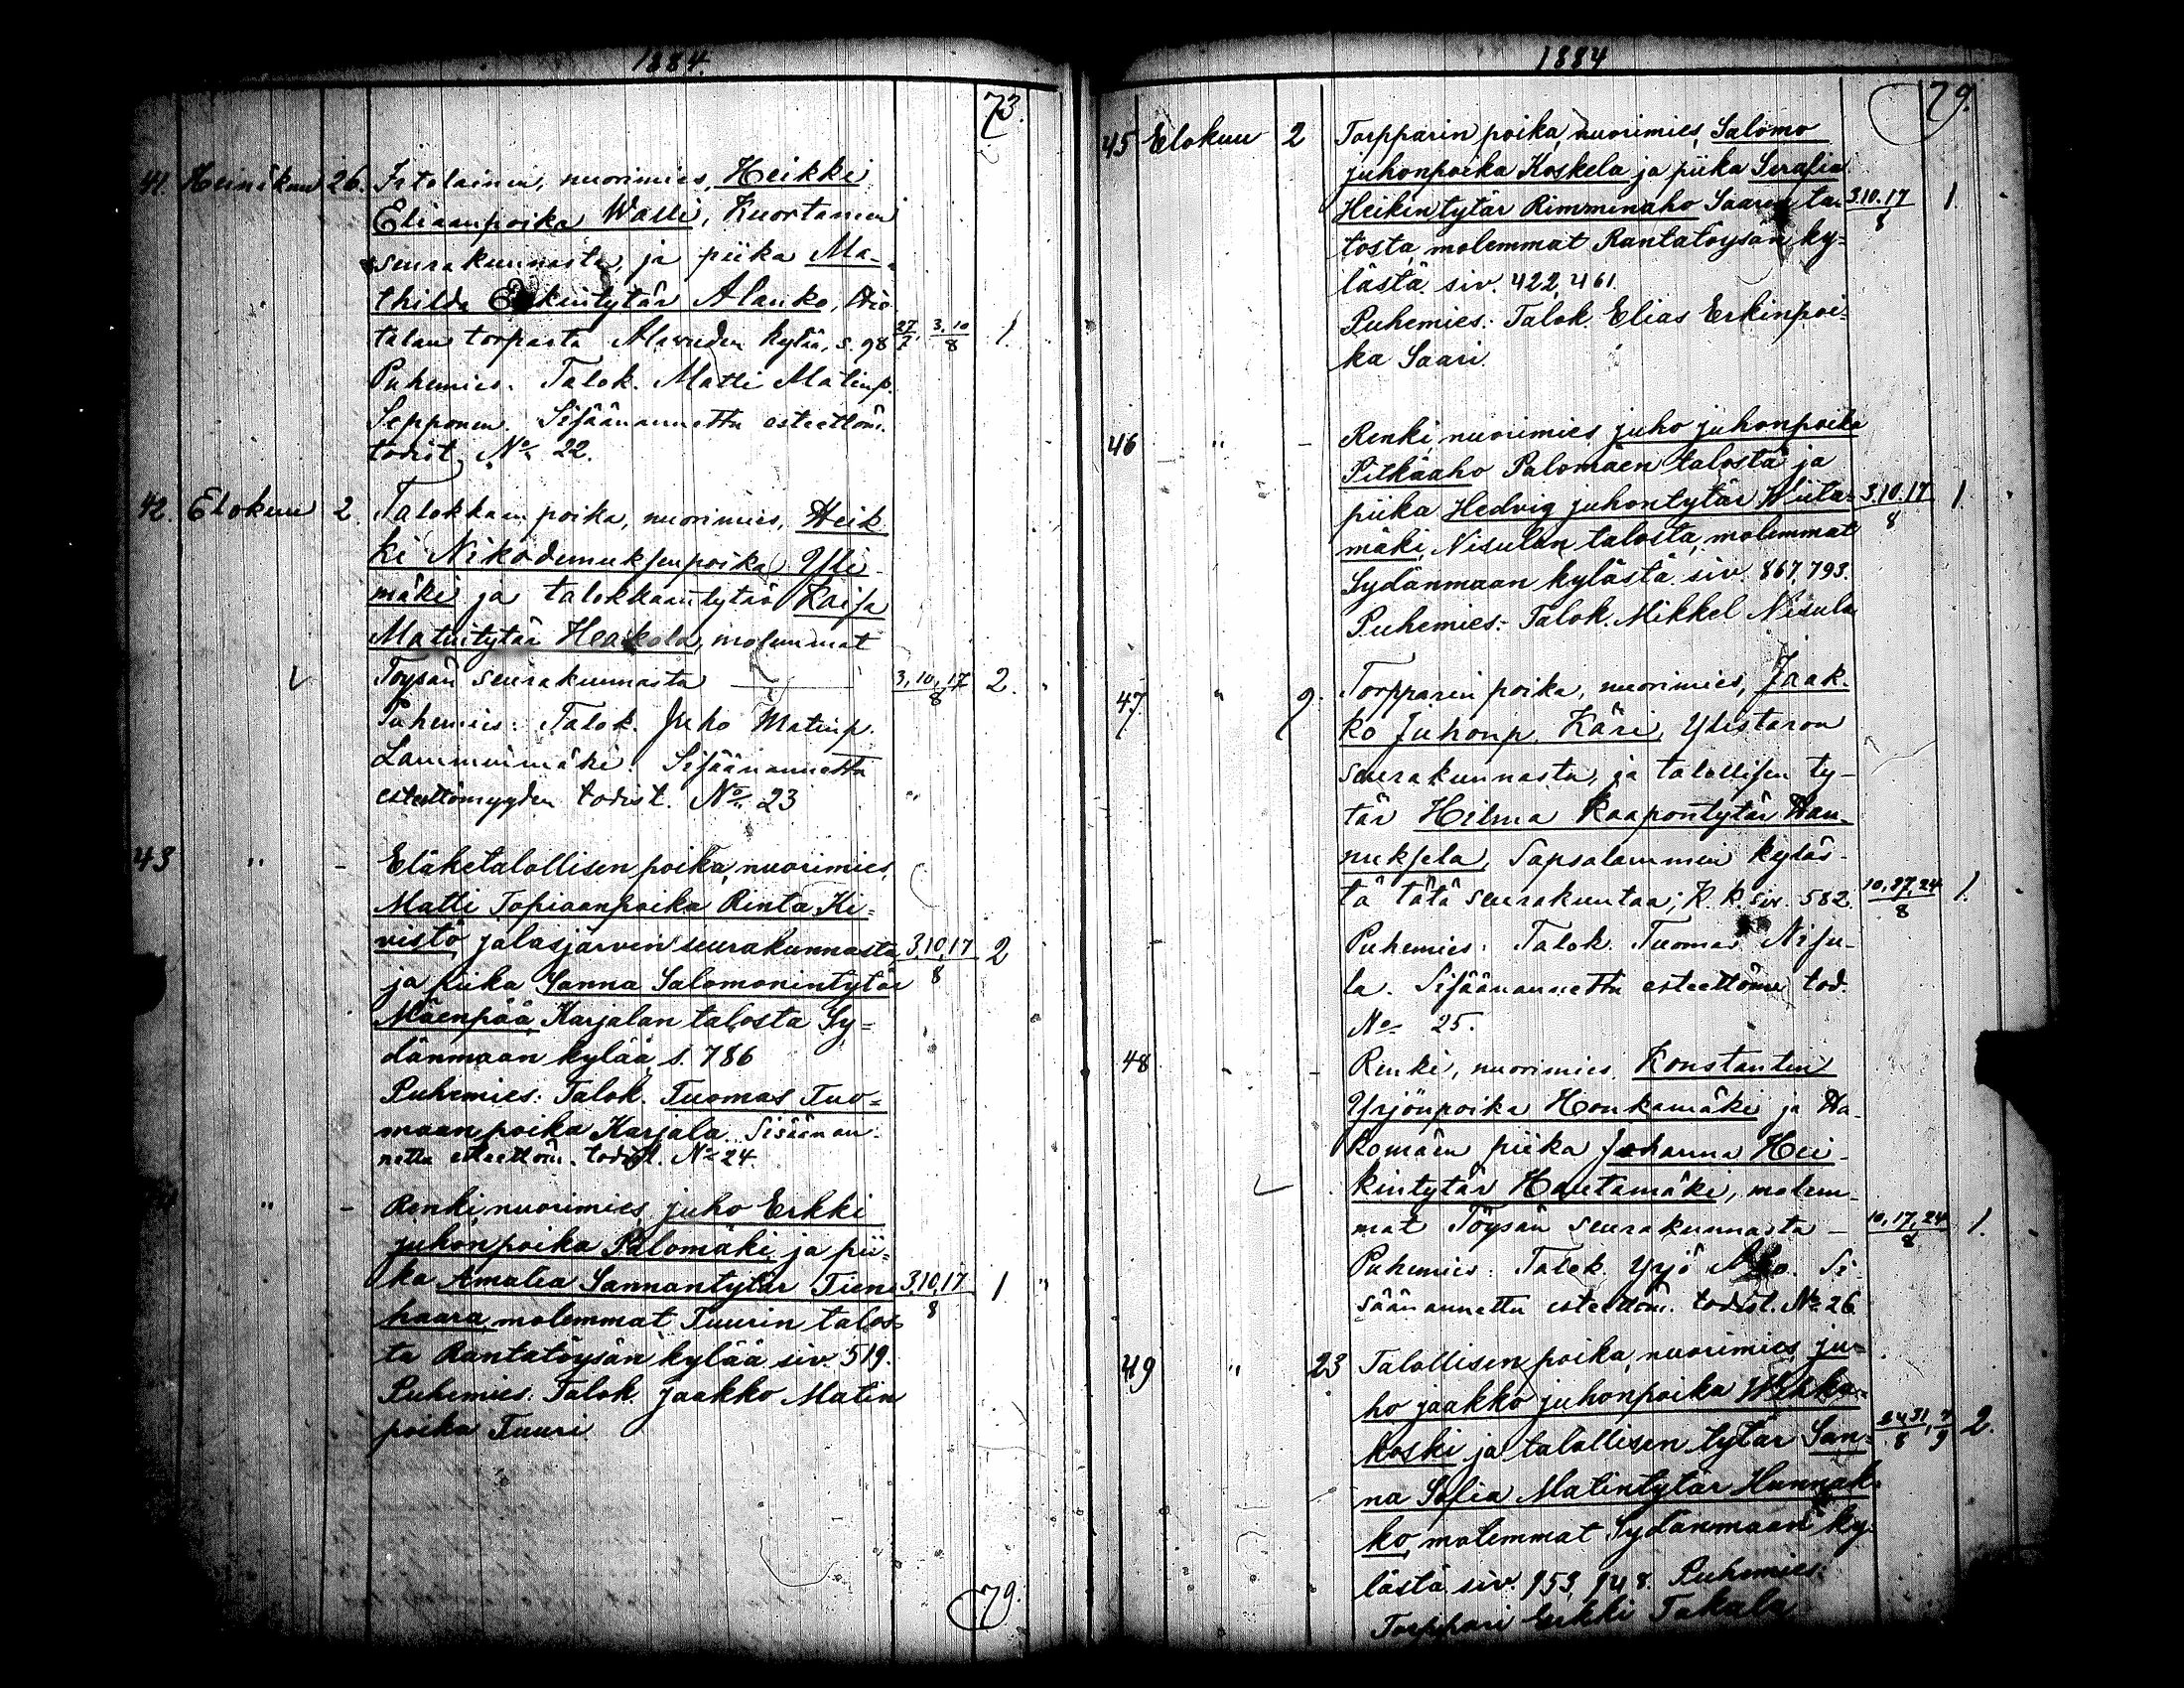 1884.
73.
41. Heinäkuu 26. Itelainen, nuorimies, Heikki
Eliaanpoika Walli, Kuortaneen
seurakunnasta, ja piika Ma-
thilda Erkintytär Alanko,
talan torpasta Alavuden kylää, s. 98 27/7, 3,10/8 1.
Puhemies: Talok. Matti Matinp.
Sepponen. Sisäänannettu esteettöm.
todist. No 22.
42. Elokuu 2. Talokkaan poika, nuorimies, Heik-
ki Nikodemuksenpoika Yli-
mäki ja talokkaantytär Kaisa
Matintytär Heakola, molemmat
Töysän seurakunnasta 3,10,17/8 2.
Puhemies: Talok. Juho Matinp.
Lamminmäki. Sisäänannettu
esteettömyyden todist. No 23
43 " - Eläketalollisen poika, nuorimies,
Matti Topiaanpoika Rinta Ki=
vistö, jalasjärven seurakunnasta, 3,10,17/8 2
ja piika Sanna Salomonintytär
Mäenpää, Karjalan talosta Sy=
dänmaan kylää, s. 786
Puhemies: Talok. Tuomas Tuo=
maanpoika Karjala. Sisäänan-
nettu esteettöm. todist. No 24.
" - Renki, nuorimies, juho Erkki
juhonpoika Palomäki ja pii=
ka Amalia Sannantytär Tien= 3,10,17/8 1
haara, molemmat Tuurin talos=
ta Rantatöysän kylää siv. 519.
Puhemies: Talok. jaakko Matin
poika Tuuri
79.
1884
79.
45 Elokuu 2 Torpparin poika, nuorimies, Salomo
juhonpoika Koskela ja piika Serafia
Heikintytär Rimminaho Saaren ta- 3.10.17/8 1.
losta, molemmat Rantatöysän ky=
lästä. siv. 422, 461.
Puhemies: Talok. Elias Erkinpoi=
ka Saari.
46 " - Renki, nuorimies juho juhonpoika
Pitkäaho Palomäen talosta ja
piika Hedvig juhontytär Hiita= 3.10.17/8 1.
mäki, Nisulan talosta, molemmat
Sydänmaan kylästä siv. 867, 793.
Puhemies: Talok. Mikkel Nisula
47. " 9. Torpparin poika, nuorimies, Jaak-
ko Juhonp. Käri, Ylistaron
seurakunnasta, ja talollisen ty-
tär Hilma Kaapontytär Han-
nuksela, Sapsalammin kyläs-
tä tätä seurakuntaa; K. k. siv. 582. 10,17,24/8 1.
Puhemies: Talok. Tuomas Nisu-
la. Sisäänannettu esteettöm. tod.
No 25.
48 " - Renki, nuorimies, Konstantin
Yrjönpoika Honkamäki ja Ha-
komäen piika Johanna Hei-
kintytär Hautamäki, molem-
mat Töysän seurakunnasta - 10,17,24/8 1.
Puhemies: Talok. Yrjö Aho. Si-
säänannettu esteettöm. todist. No 26
49 " 23 Talollisen poika, nuorimies, ju=
ho jaakko juhonpoika
koski ja talollisen tytär San= 24,31/8, 7/9 2.
na Sofia Matintytär Hunnak-
ko, molemmat Sydänmaan ky-
lästä siv. 953, 948. Puhemies:
Torppari Erkki Takala